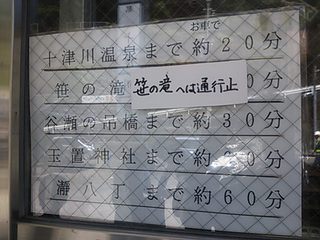 お車で
十津川温泉まで約20分
笹の滝 笹の滝へは通行止
谷瀬の吊橋まで約30分
玉置神社まで約 0分
瀞八丁まで約60分